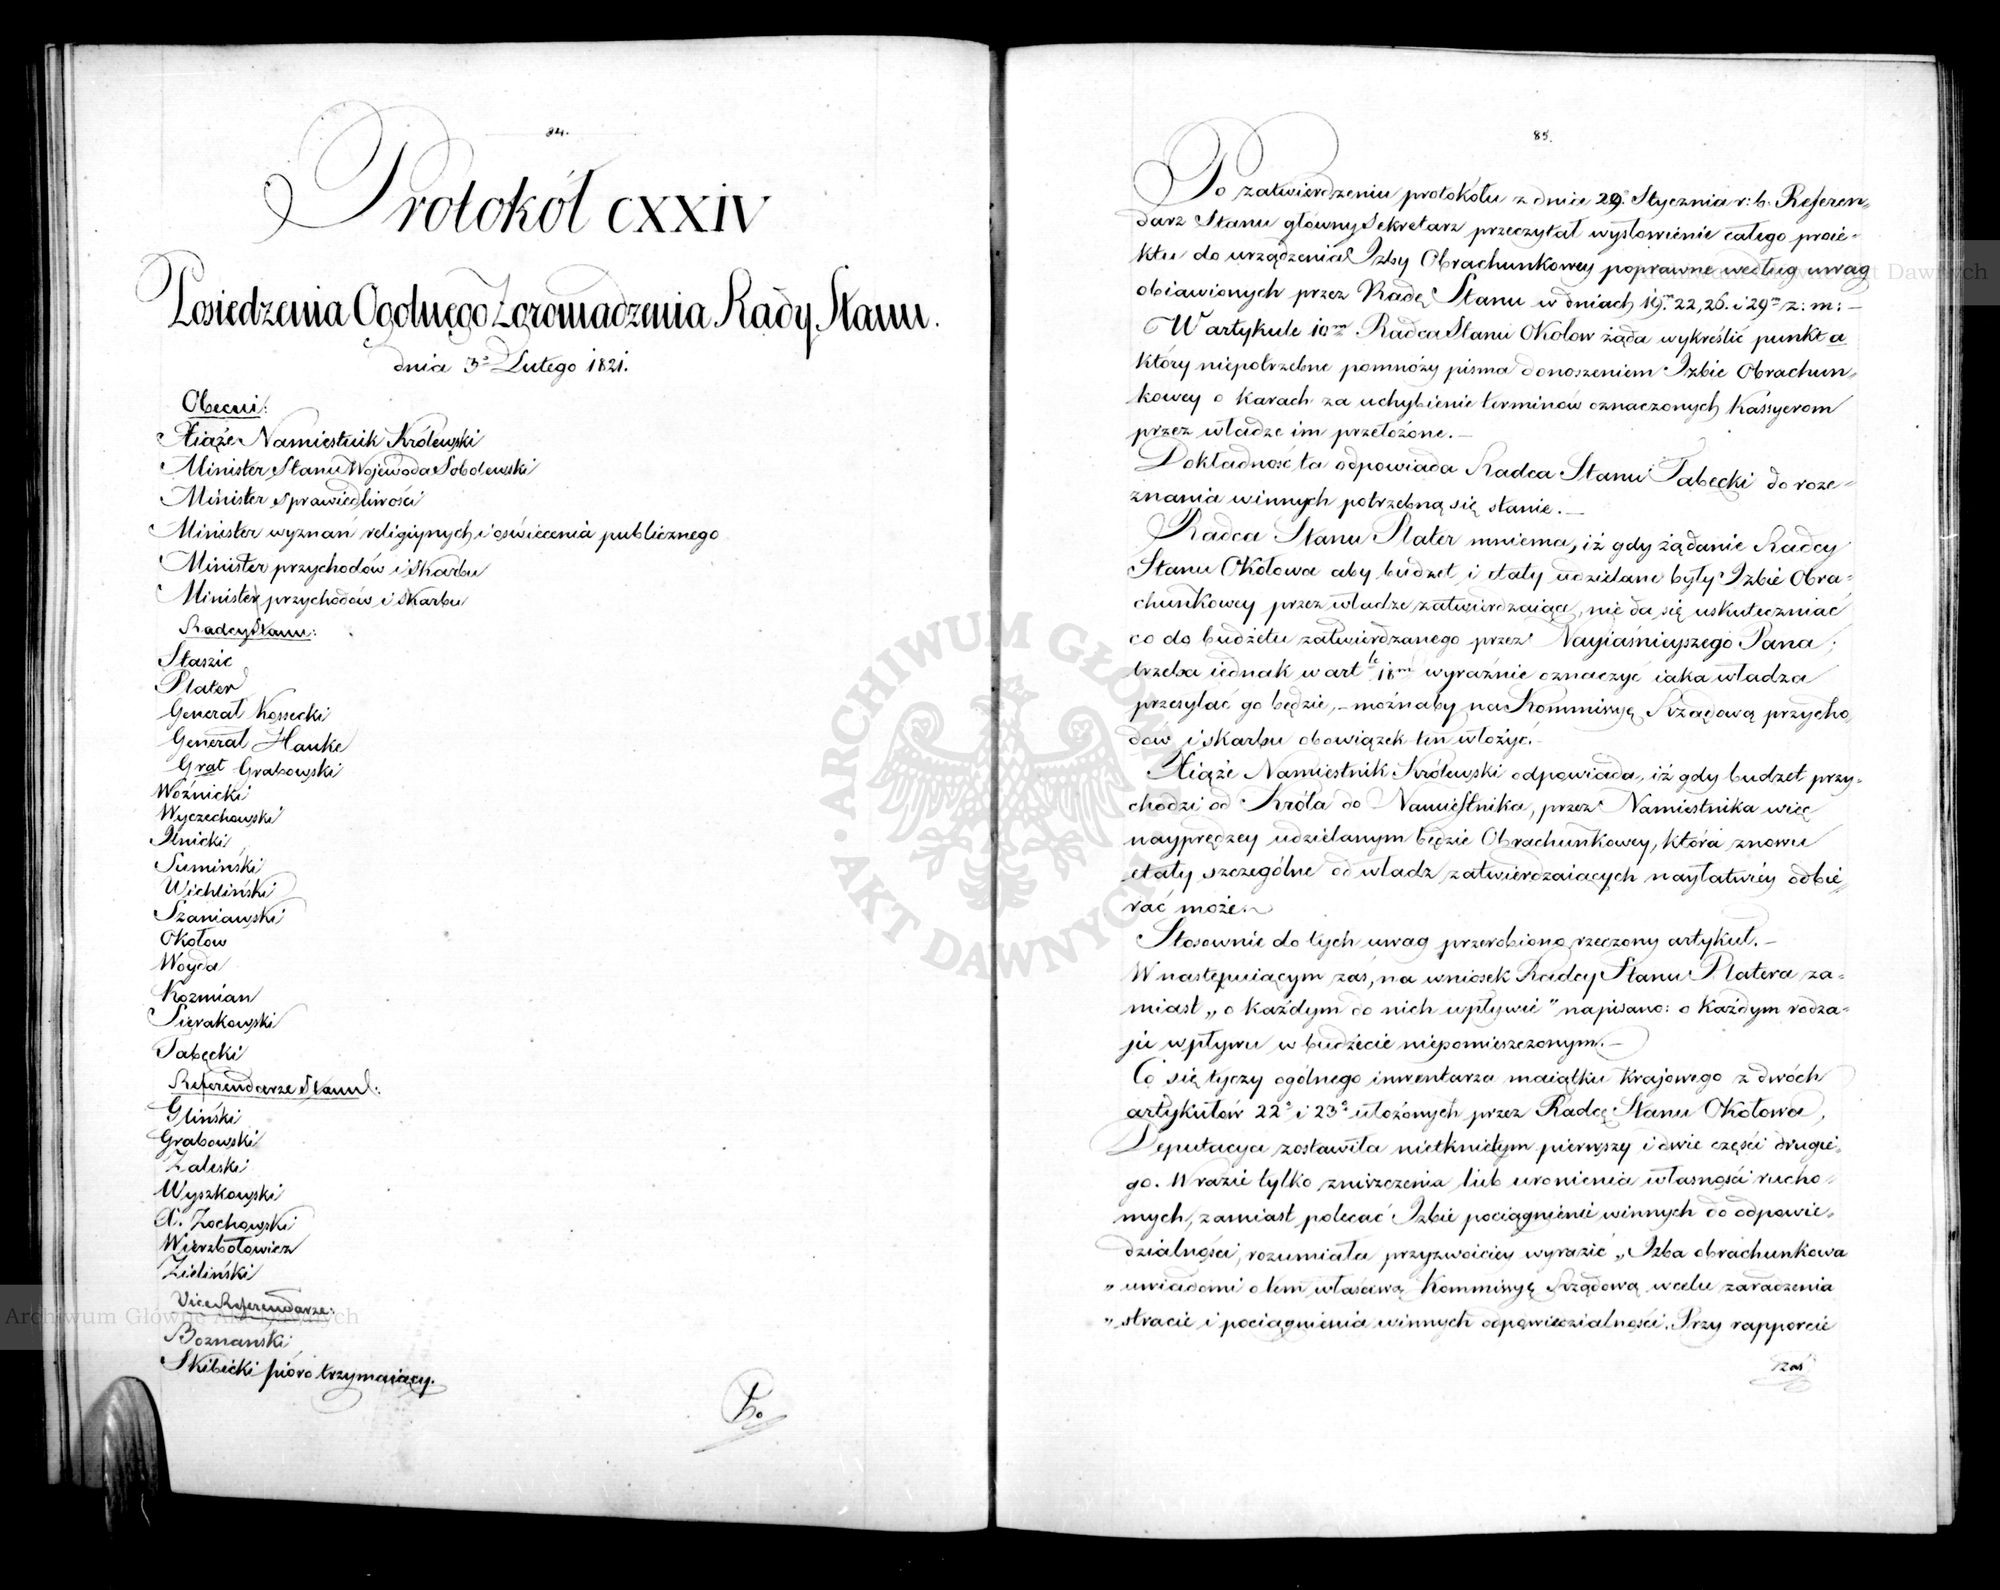 84.
Protokół CXXIV
Posiedzenia Ogolnego Zgromadzenia Rady Stanu.
dnia 3º Lutego 1821.
Obecni:
Xiąże Namiestnik Królewski
Minister Stanu Wojewoda Sobolewski
Minister Sprawiedliwości
Minister wyznań religiynych i oświecenia publicznego
Minister przychodów i Skarbu
Minister przychodów i Skarbu
Radcy Stanu:
Staszic
Plater
Generał Kossecki
Generał Hauke
Grabowski
Woźnicki
Wyczechowski
Ilnicki
Sumiński
Wichliński
Szaniawski
Okołow
Woyda
Kozmian
Sierakowski
Tabęcki
Referendarze Stanu:
Gliński
Grabowski
Zaleski
Wyszkowski
X. Zochowski
Wierzbołowicz
Zieliński
Vice Referendarze:
Boznański
Skibicki pióro trzymaiący.
Po
85.
Po zatwierdzeniu protokółu z dnia 29º Stycznia r: b. Referen-
darz Stanu główny Sekretarz przeczytał wysłowienie całego proie-
ktu do urządzenia Izby Obrachunkowey poprawne według uwag
obiawionych przez Radę Stanu w dniach 19. 22, 26. i 29m z: m: –
W artykule 10m Radca Stanu Okołow żąda wykreślić punkt a
który niepotrzebne pomnoży pisma donoszeniem Izbie Obrachun-
kowey o karach za uchybienie terminów oznaczonych Kassyerom
przez władze im przełożone. –
Dokładność ta odpowiada Radca Stanu Tabęcki do roze-
znania winnych potrzebną się stanie. –
Radca Stanu Plater mniema, iż gdy żądanie Radcy
Stanu Okołowa aby budżet i etaty udzielane były Izbie Obra-
chunkowey przez władze zatwierdzaiące, nie da się uskuteczniać
co do budżetu zatwierdzanego przez Nayiaśnieyszego Pana;
trzeba iednak w artle 18m wyraźnie oznaczyć iaka władza
przesyłać go będzie, – możnaby na Kommissyę Rządową przycho-
dów i skarbu obowiązek ten włożyć. –
Xiąże Namiestnik Królewski odpowiada, iż gdy budżet przy-
chodzi od Króla do Namiestnika, przez Namiestnika więc
nayprędzey udzielanym będzie Obrachunkowey, która znowu
etaty szczególne od władz zatwierdzaiących nayłatwiéy odbie-
rać może.
Stosownie do tych uwag przerobiono rzeczony artykuł. –
W następuiącym zaś, na wniosek Radcy Stanu Platera za-
miast „o każdym do nich wpływie" napisano: o każdym rodza-
ju wpływu w budżecie niepomieszczonym. –
Co się tyczy ogólnego inwentarza maiątku krajowego z dwóch
artykułów 22º i 23º ułożonych przez Radcę Stanu Okołowa,
Deputacya zostawiła nietkniętym pierwszy i dwie części drugie-
go. W razie tylko zniszczenia lub uronienia własności rucho-
mych, zamiast polecać Izbie pociągnienie winnych do odpowie-
dzialności, rozumiała przyzwoiciey wyrazić „Izba obrachunkowa
„uwiadomi o tem właściwą Kommissyę Rządową w celu zaradzenia
„stracie i pociągnienia winnych odpowiedzialności. Przy rapporcie
zaś
ARCHIWUM GŁÓWNE AKT DAWNYCH
Archiwum Główne Akt Dawnych
Archiwum Główne Akt Dawnych